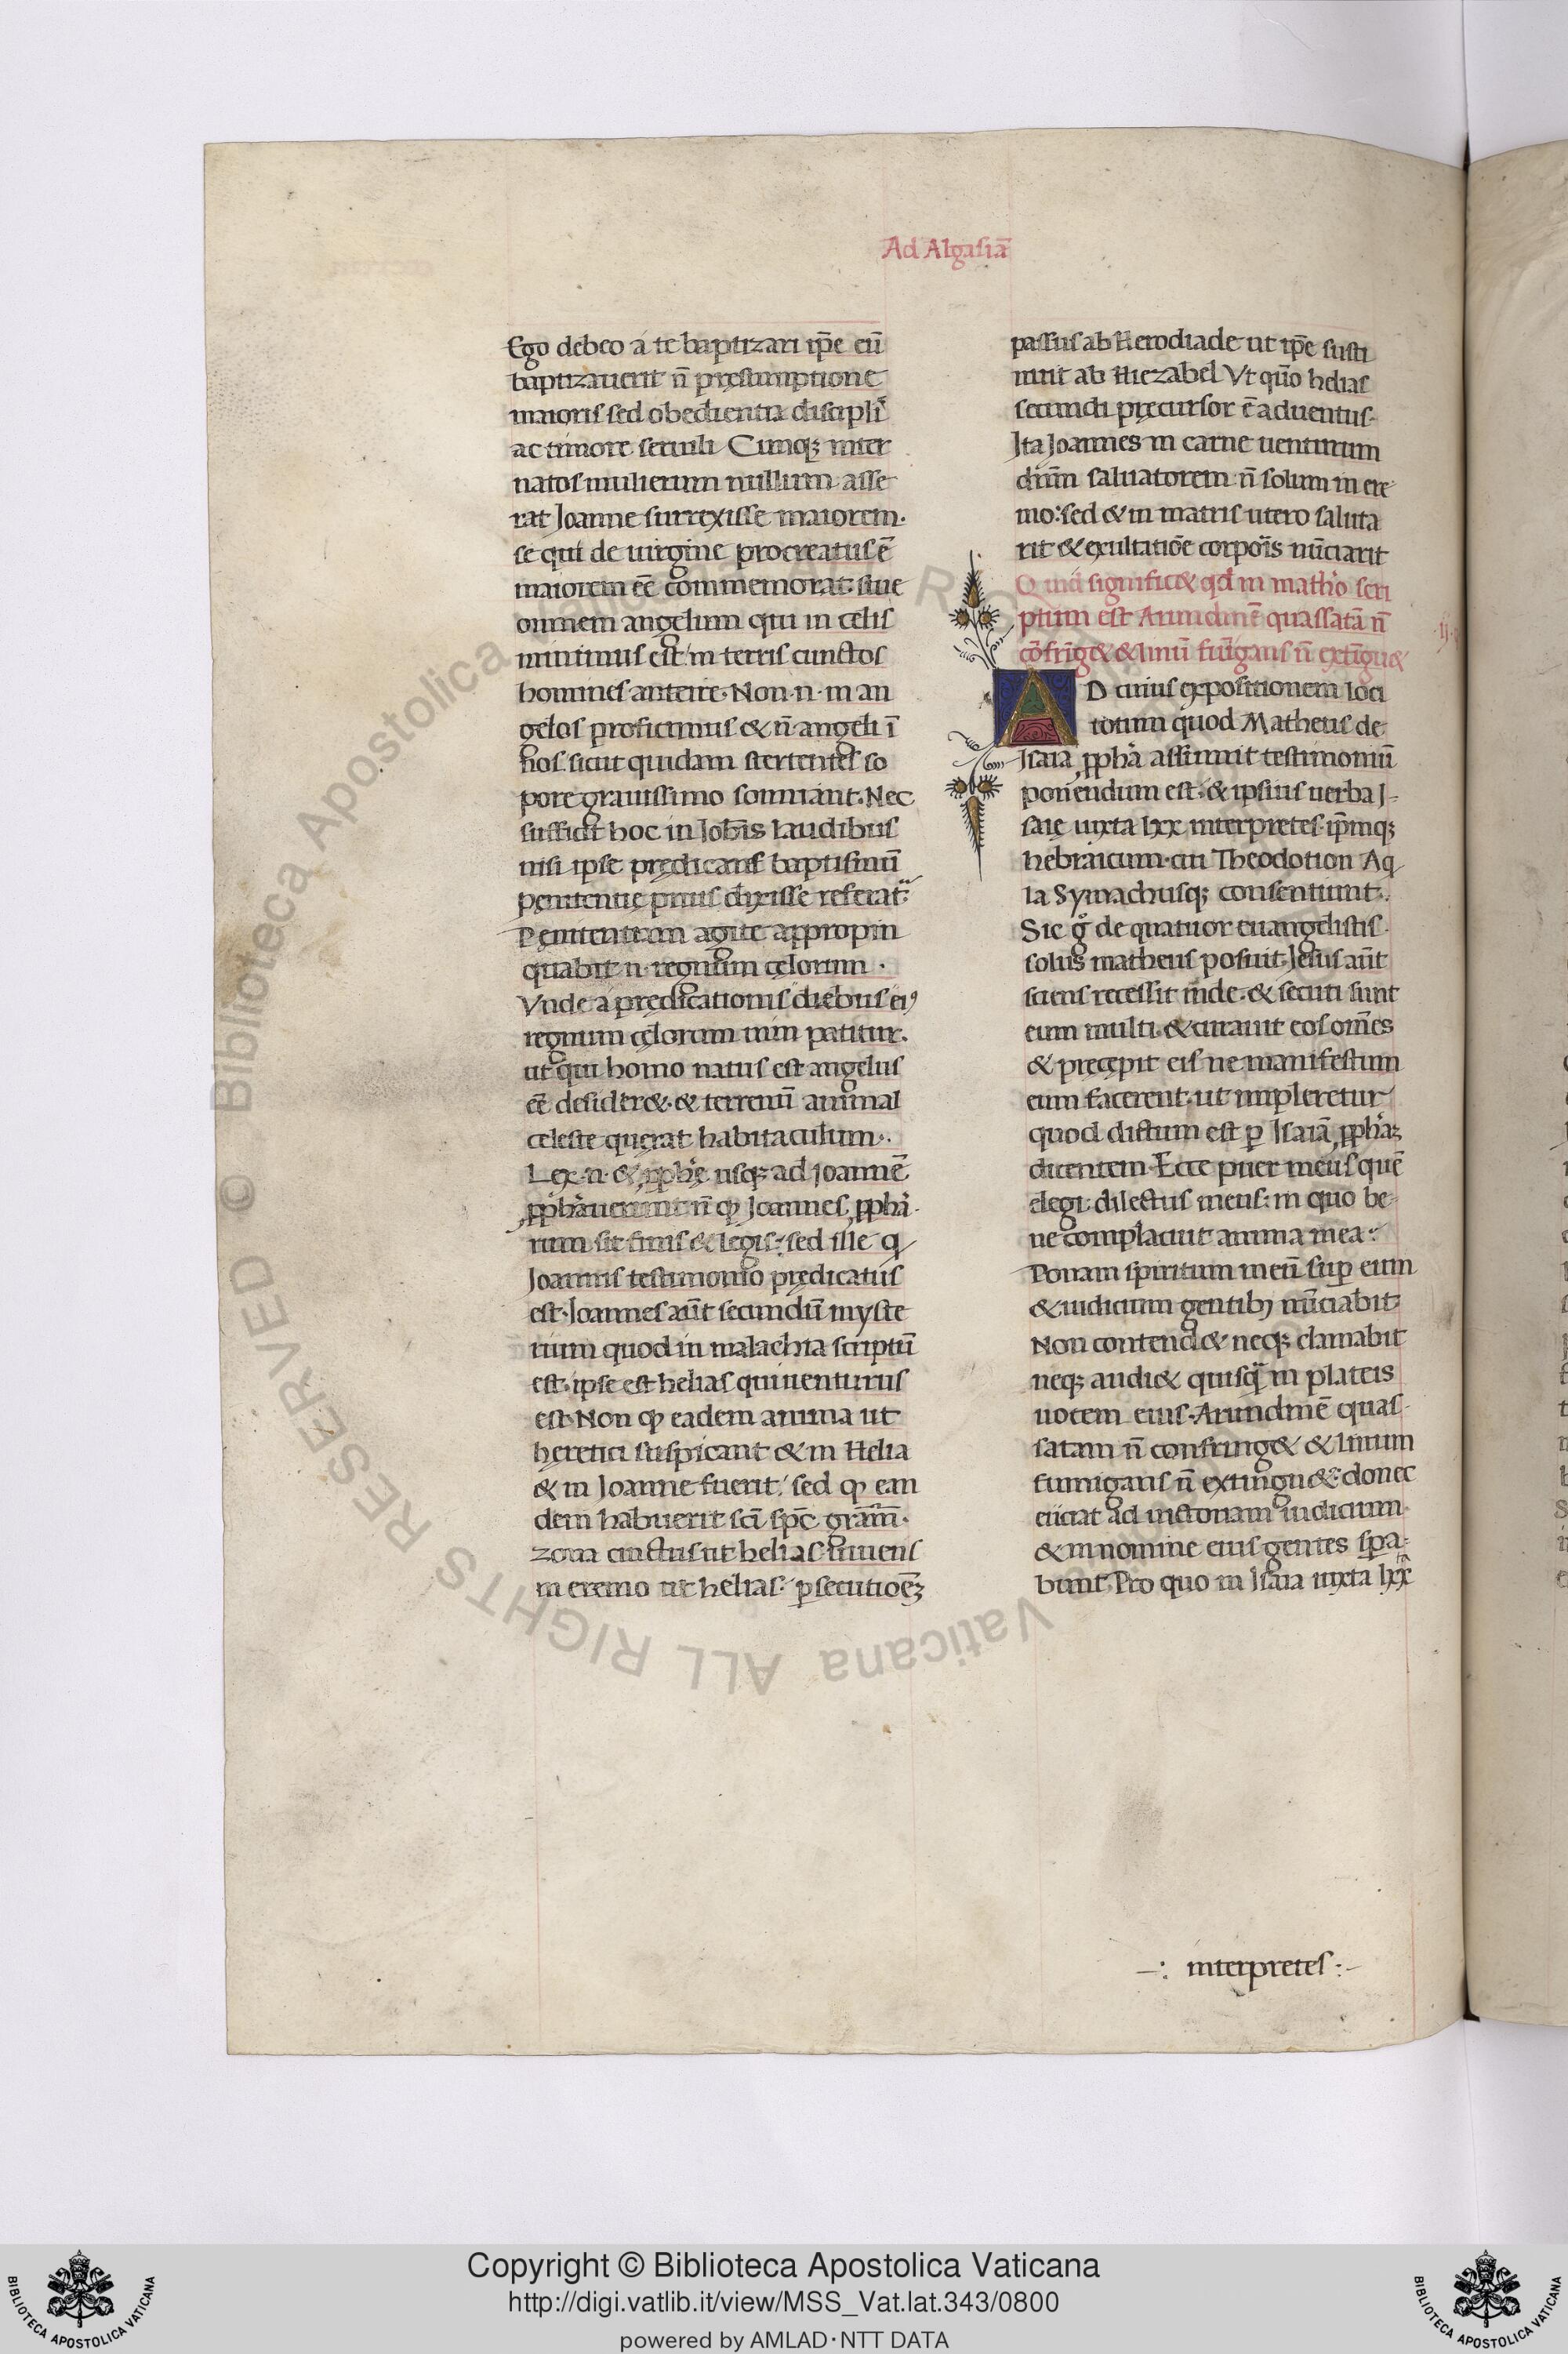 Ad Algasiā
Ego debeo a te baptizari ip̄e eū
baptizauerit n̄ pręsumptione
maioris sed obedientia discipli
ac timore seruili Cumq; inter
natos mulierum nullum asse
rat Joanne surrexisse maiorem.
se qui de uirgine procreatus ē
maiorem eē commemorat siue
omnem angelum qui in celis
minimus est in terris cunctos
homines anteire. Non .n. in an
gelos proficimus & n̄ angeli ī
nos sicut quidam stertentes so
pore grauissimo somniant. Nec
sufficit hoc in Joh̄is laudibus
nisi ipse prędicans baptismū
pęnitentię prius dixisse referat:
Pęnitentiam agite appropin
quabit .n. regnum cęlorum .
Vnde a prędicationis diebus ei9
regnum cęlorum uim patitur.
ut qui homo natus est angelus
eē desider& . & terrenū animal
celeste quęrat habitaculum.
Lex .n. & pphę usq; ad Joannē
pphauerunt n̄ q Joannes ppha
rum sit finis & legis: sed ille q
Joannis testimonio prędicatus
est. Joannes aūt secundū myste
rium quod in malachia scriptū
est. ipse est helias qui uenturus
est. Non q eadem anima ut
heretici suspicant & in Helia
& in Joanne fuerit: sed q ean
dem habuerit sc̄i sp̄c gr̄am.
zona cinctus ut helias. uiuens
in eremo ut helias. psecutioēȝ
passus ab Herodiade ut ip̄e susti
nuit ab Hiezabel Vt quō helias
secundi pręcursor ē aduentus.
Ita Joannes in carne uenturum
dn̄m saluatorem n̄ solum in ere
mo: sed & in matris utero saluta
rit & exultatiōe corporis nūciarit
Quid signific& qd in math'o scri
ptum est Arundinē quassatā n̄
cōfrīg& & linū fumigans n̄ extīgu&
.ij.
AD cuius expositionem loci
totum quod Matheus de
Isaia ppha assumit testimoniū
ponendum est. & ipsius uerba I-
saię iuxta lxx interpretes. ip̄mq;
hebraicum. cui Theodotion Aq
la Symachusq; consentiunt.
Sic g de quatuor euangelistis
solus matheus posuit. Jesus aūt
sciens recessit inde. & secuti sunt
eum multi. & curauit eos om̄es
& pręcępit eis ne manifestum
eum facerent. ut impleretur
quod dictum est p Isaiā pphaȝ
dicentem. Ecce puer meus quē
elegi. dilectus meus: in quo be-
ne complacuit anima mea:
Ponam spiritum meū sup eum
& iudicium gentib; nūciabit
Non contend& neq; clamabit
neq; audi& quisq in plateis
uocem eius. Arundinē quas-
satam n̄ confring& & linum
fumigans n̄ extingu&: donec
eiiciat ad uictoriam iudicium
& in nomine eius gentes spa-
bunt. Pro quo in Isaia iuxta lxx
interpretes
Copyright © Biblioteca Apostolica Vaticana
http://digi.vatlib.it/view/MSS_Vat.lat.343/0800
powered by AMLAD·NTT DATA
BIBLIOTECA APOSTOLICA VATICANA
BIBLIOTECA APOSTOLICA VATICANA